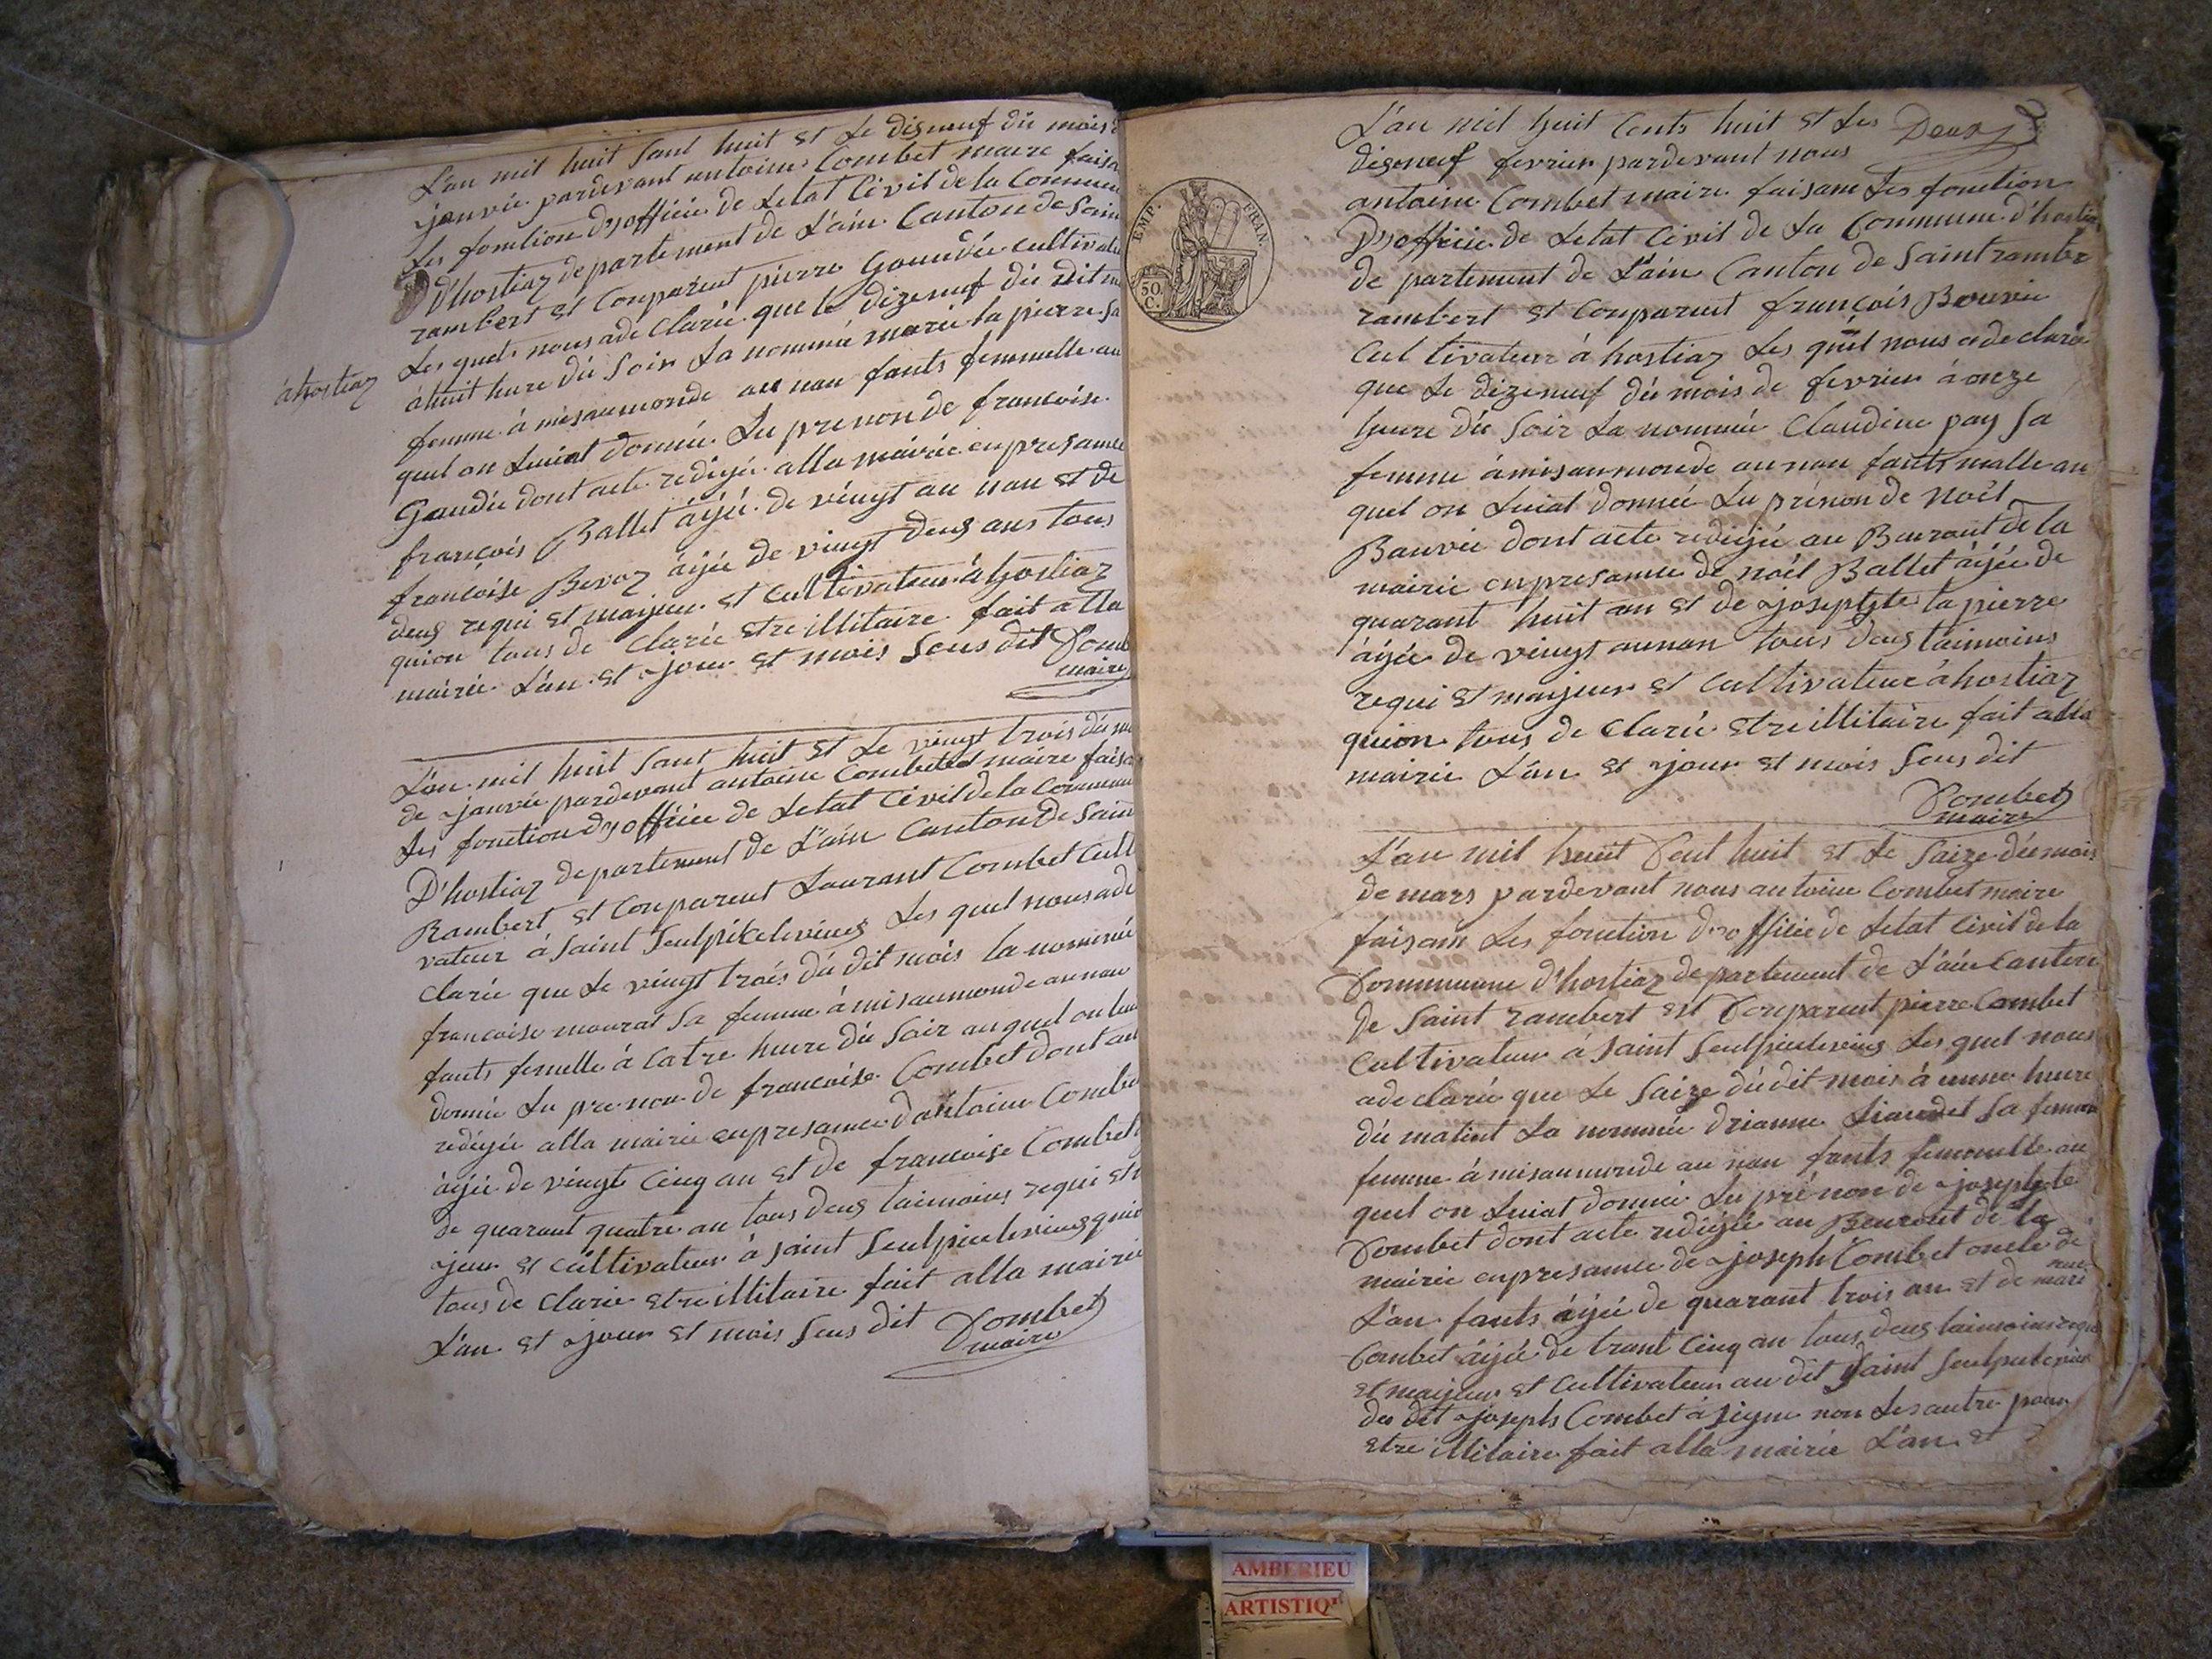 L'an mil huit sant huit et le disneuf du mois d
janvié pardevant antoine Combet maire faisa
les fonction d'yofficié de letat Civil de la Commun
D'hostiaz departement de L'ain Canton de Sain
rambert et Conparent pierre Goundié cultivate
à hostiaz
Les quel nous a de Clarié que le dizeneuf du dit m
à huit hure du soir La nomméé marie la pierre sa
femme à misaumonde au nan fants femmelle au
quel on Luiat donnéé Lu prenon de francoise
Goudié dont acte redigé alla mairie en presamce
francois Ballet âjéé de vingt au nan et de
francoise Bevoz âjéé de vingt deus ans tous
deus requi et majeur et Cultivateur à hostiaz
quion tous de Clarié etre illitaire fait alla
mairie L'an et jour et mois sous dit Comb
maire
L'an mil huit sant huit et Le vingt trois du m
de janvié pardevant antoine Combet maire faisa
Les fonction d'yofficie de Letat Civil de la Commun
D'hostiaz departement de L'ain Canton de Sain
Rambert et Conparent Laurant Combet Cult
vateur à Saint Seulpicelevieus Les quel nous a de
Clarié que Le vingt trois du dit mois la nomméé
francoise mourat sa femme à misaumonde au nan
fants femelle à Catre hure du Soir au quel on lui
donnéé Lu pre non de francoise Combet dont act
redigéé alla mairie en presamce d'antoine Combe
âjéé de vingt Cinq an et de francoise Combet
de quarant quatre an tous deus taimoins requi et m
jeur et Cultivateur à Saint Seulpicelevieus quio
tous de Clarié etre illitaire fait alla mairie
L'an et jour et mois sous dit Combet
maire
EMP. FRAN.
50. C.
L'an mil huit Cents huit et Les Deux
diseneuf fevrier pardevant nous
antoine Combet maire faisant Les fonction
D'yofficié de Letat Civil de La Commune d'hostia
de partement de L'ain Canton de Saint rambe
rambert et Conparent francois Bouvié
Cultivateur à hostiaz Les quél nous a de claréé
que Le dizeneuf du mois de fevrier à onze
heure du Soir La nomméé Claudine pay Sa
femme à misaumonde au nan fants malle au
quel on Luiat donnéé Lu prénon de noël
Bauvié dont acte redigéé au Bauraut de la
mairie en presamce de noël Ballet âjéé de
quarant huit an et de josephte la pierre
âjéé de vingt aunan tous deus taimoins
requi et majeur et Cultivateur à hostiaz
quion tous de Clarié etre illitaire fait alla
mairie L'an et jour et mois sous dit
Combet
maire
L'an mil huit Cent huit et Le Saize du mois
de mars pardevant nous antoine Combet maire
faisant Les fonction d'yofficiéé de Letat Civil de la
Commune d'hostiaz departement de L'ain Canton
de Saint rambert est Conparent pierre Combet
Cultivateur à Saint Seulpicelevieus Les quel nous
a declaréé que Le Saize du dit mois à unne hure
du matint La nomméé drianne Liaudet sa femme
femme à misaumonde au nan fants femmelle au
quel on Luiat donnéé Lu prénon de josephte
Combet dont acte redigéé au Beuraut de la
mairie en presamce de joseph Combet oncle de
L'an fants âjéé de quarant trois an et de mari
Combet âjéé de trant Cinq an tous deus taimoins requi
et majeur et Cultivateur au dit Saint Seulpicelevieus
du dit joseph Combet à signe non Les autre pour
etre illitaire fait alla mairie L'an et
AMBERIEU
ARTISTIQ